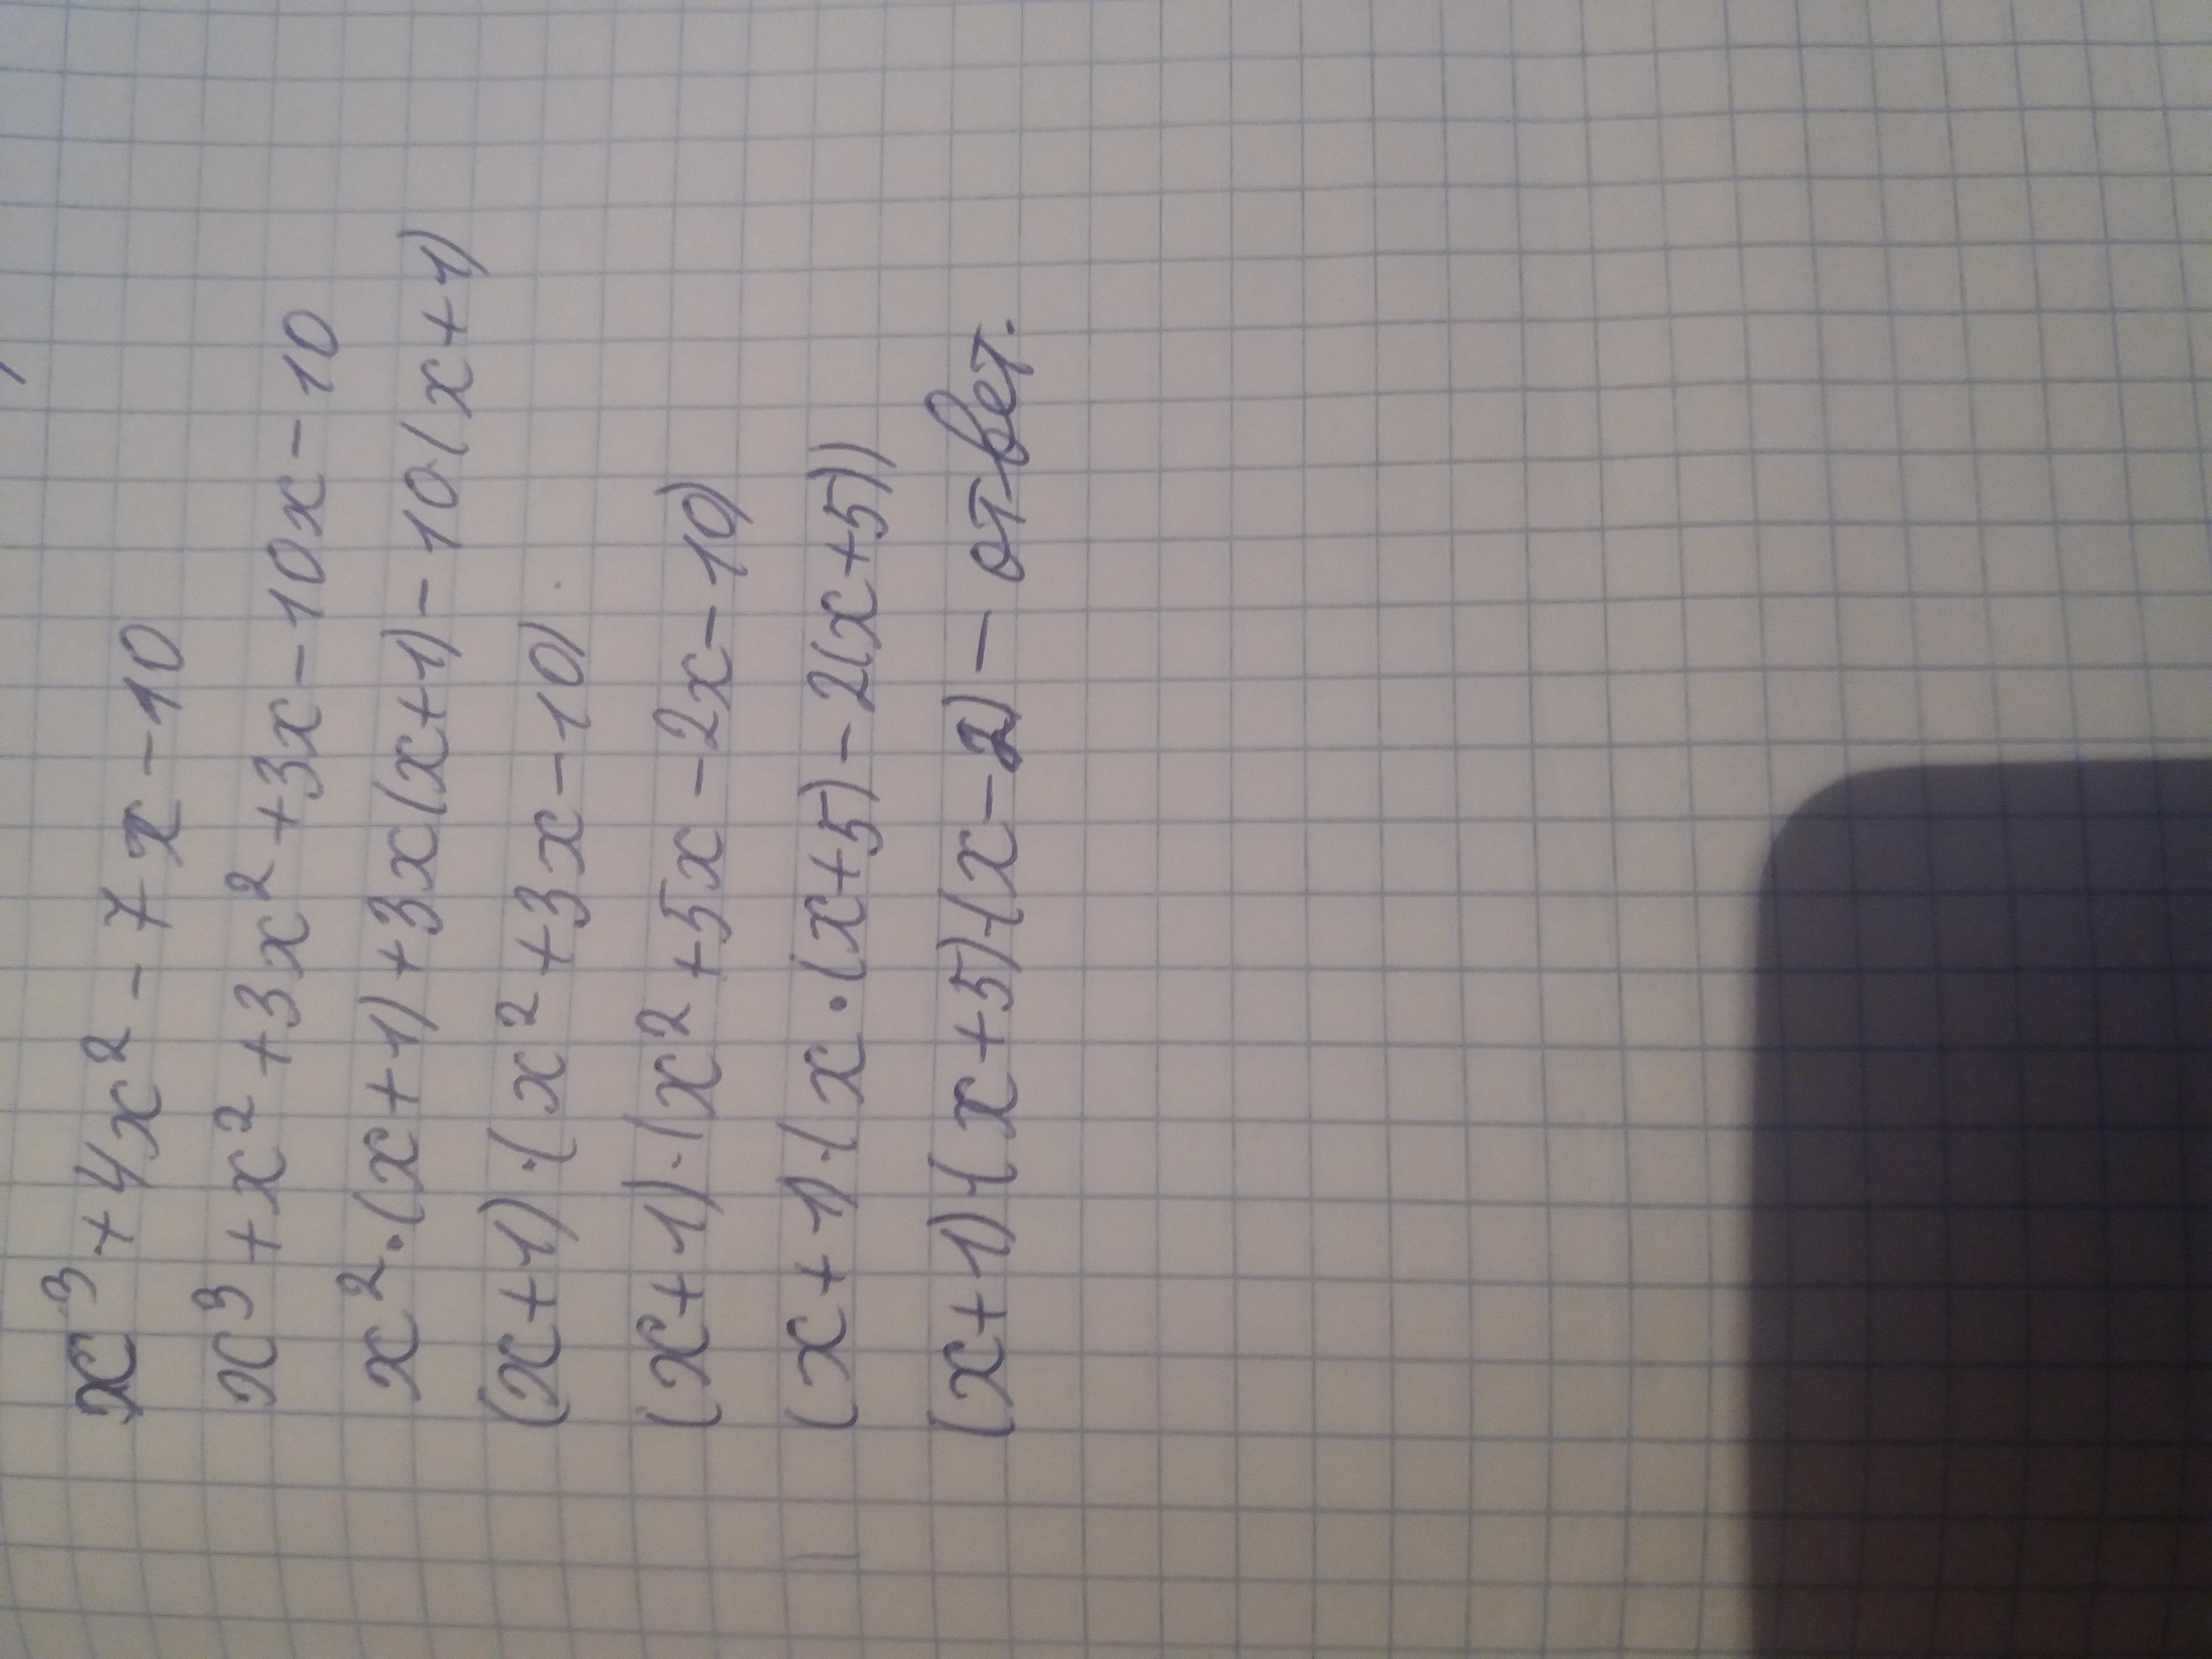 x³+4x²-7x-10
x³+x²+3x²+3x-10x-10
x²·(x+1)+3x(x+1)-10·(x+1)
(x+1)·(x²+3x-10)
(x+1)·(x²+5x-2x-10)
(x+1)·(x·(x+5)-2(x+5))
(x+1)·(x+5)·(x-2) - ответ.